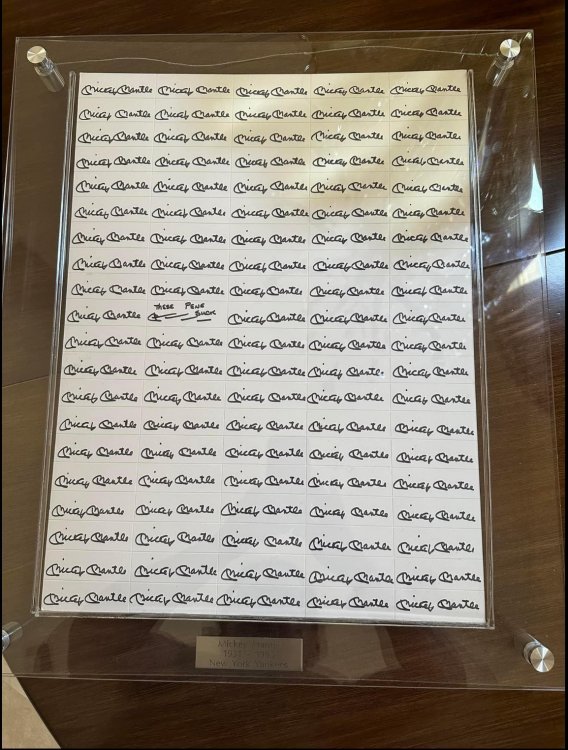 Mickey Mantle Mickey Mantle Mickey Mantle Mickey Mantle Mickey Mantle
Mickey Mantle Mickey Mantle Mickey Mantle Mickey Mantle Mickey Mantle
Mickey Mantle Mickey Mantle Mickey Mantle Mickey Mantle Mickey Mantle
Mickey Mantle Mickey Mantle Mickey Mantle Mickey Mantle Mickey Mantle
Mickey Mantle Mickey Mantle Mickey Mantle Mickey Mantle Mickey Mantle
Mickey Mantle Mickey Mantle Mickey Mantle Mickey Mantle Mickey Mantle
Mickey Mantle Mickey Mantle Mickey Mantle Mickey Mantle Mickey Mantle
Mickey Mantle Mickey Mantle Mickey Mantle Mickey Mantle Mickey Mantle
Mickey Mantle Mickey Mantle Mickey Mantle Mickey Mantle Mickey Mantle
Mickey Mantle THESE PENS SUCK Mickey Mantle Mickey Mantle Mickey Mantle
Mickey Mantle Mickey Mantle Mickey Mantle Mickey Mantle Mickey Mantle
Mickey Mantle Mickey Mantle Mickey Mantle Mickey Mantle Mickey Mantle
Mickey Mantle Mickey Mantle Mickey Mantle Mickey Mantle Mickey Mantle
Mickey Mantle Mickey Mantle Mickey Mantle Mickey Mantle Mickey Mantle
Mickey Mantle Mickey Mantle Mickey Mantle Mickey Mantle Mickey Mantle
Mickey Mantle Mickey Mantle Mickey Mantle Mickey Mantle Mickey Mantle
Mickey Mantle Mickey Mantle Mickey Mantle Mickey Mantle Mickey Mantle
Mickey Mantle Mickey Mantle Mickey Mantle Mickey Mantle Mickey Mantle
Mickey Mantle Mickey Mantle Mickey Mantle Mickey Mantle Mickey Mantle
Mickey Mantle Mickey Mantle Mickey Mantle Mickey Mantle Mickey Mantle
Mickey Mantle
1931 - 1995
New York Yankees